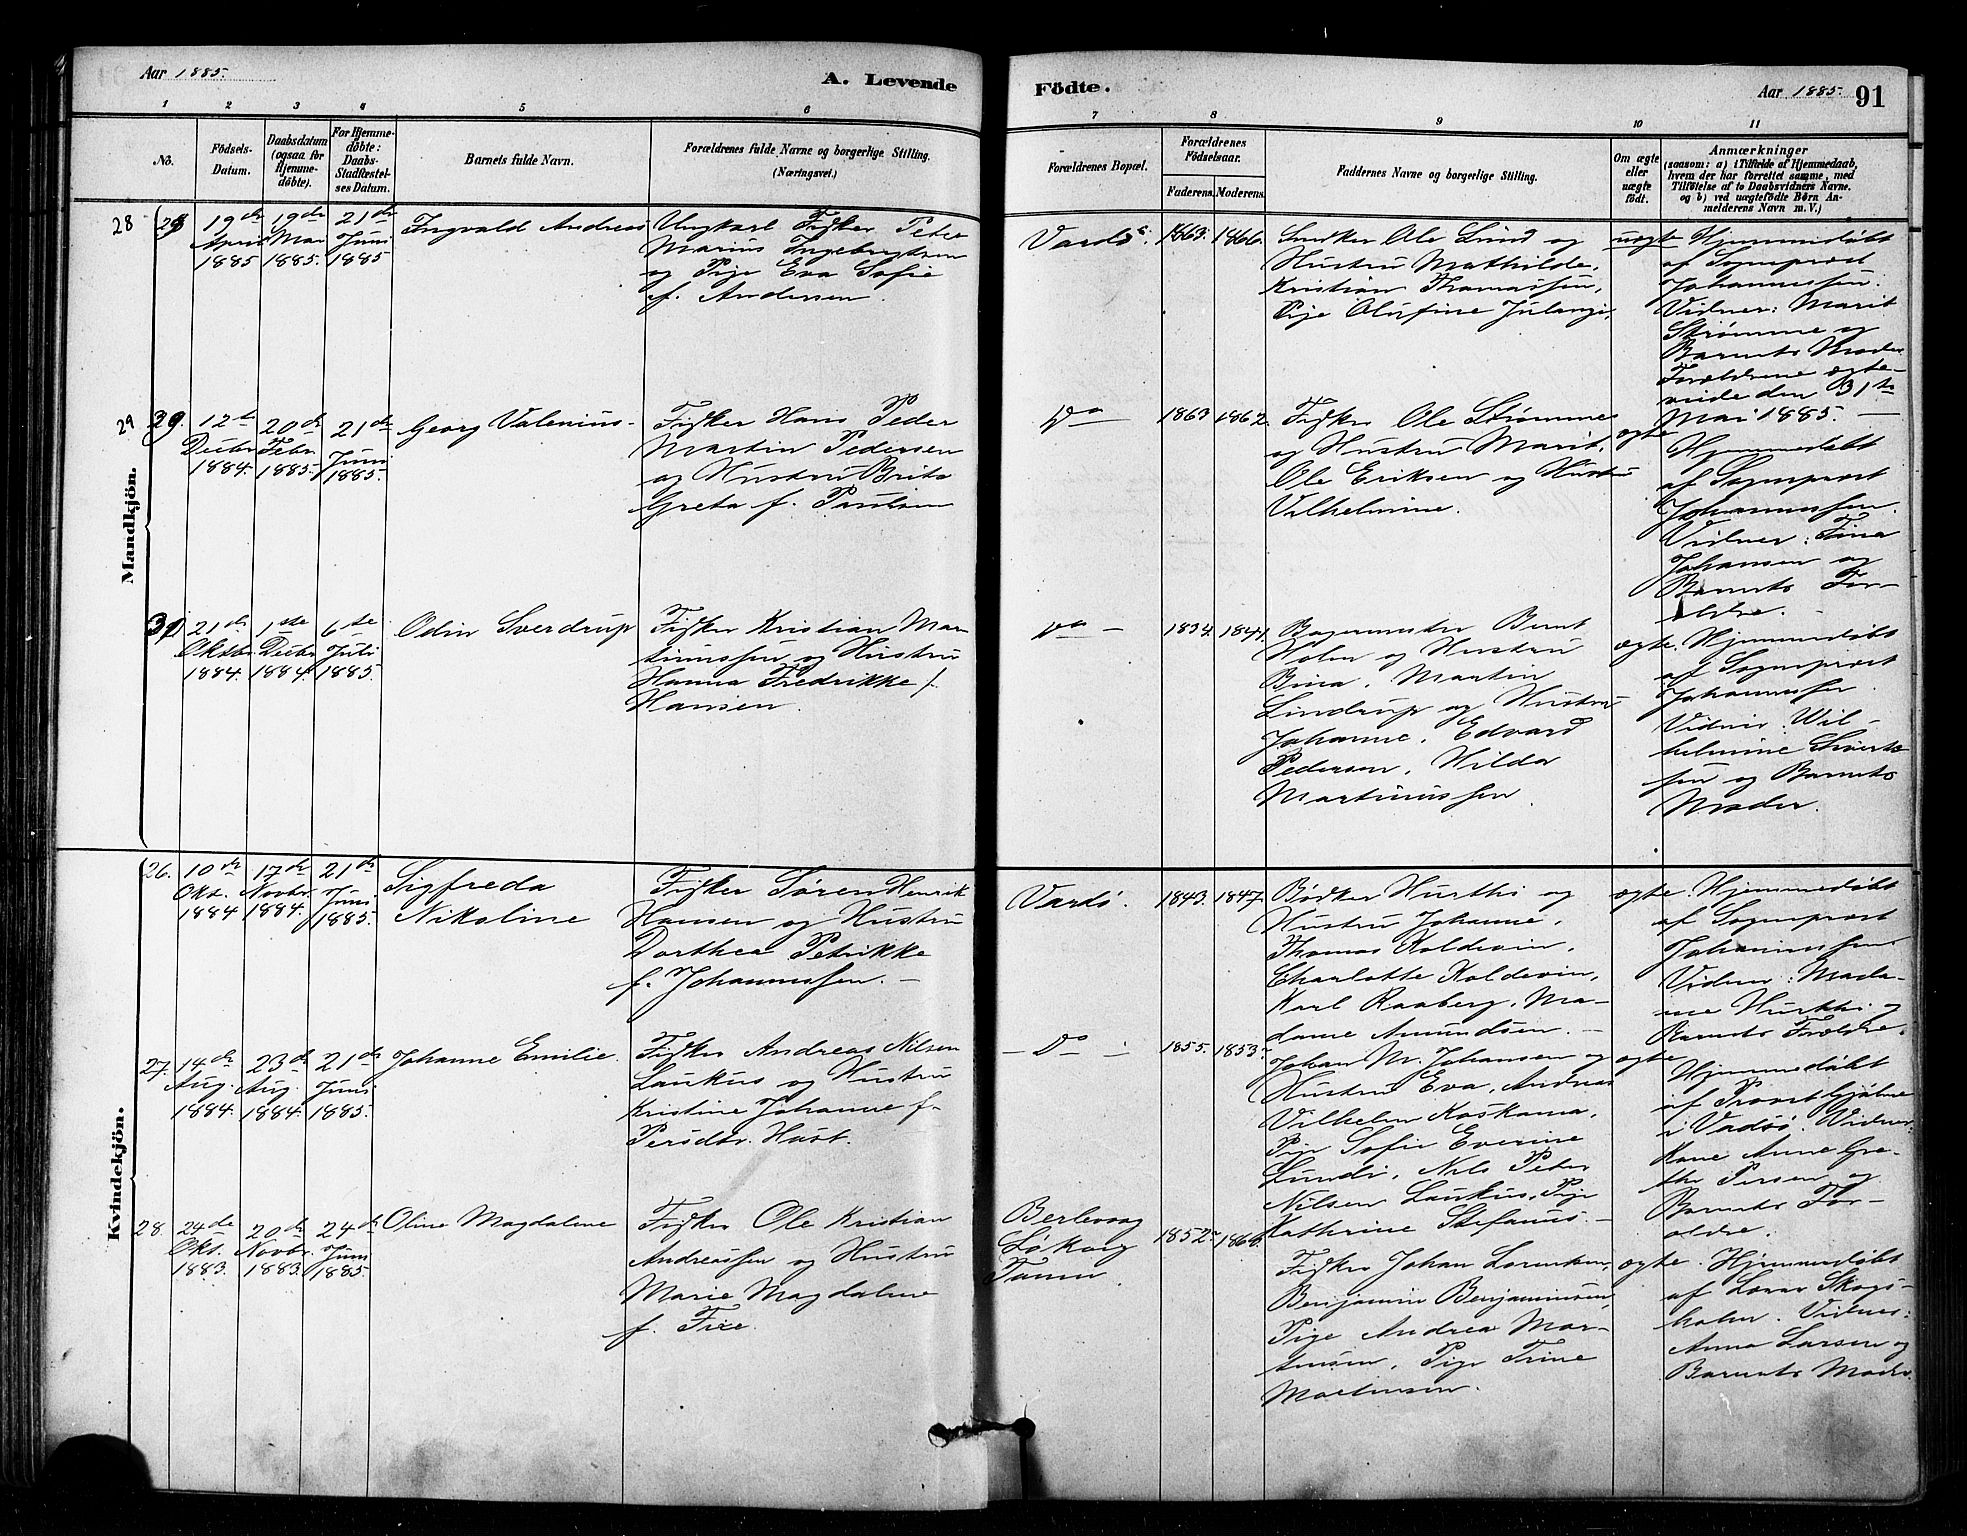 Aar 1885.
A. Levende
Födte.
Aar 1885.
91
1
2
3
4
5
6
7
8
9
10
11
No.
Födsels-
Datum.
Daabsdatum
(ogsaa for
Hjemme-
döbte).
For Hjemme-
döbte:
Daabs-
Stadfæstel-
ses Datum.
Barnets fulde Navn.
Forældrenes fulde Navne og borgerlige Stilling.
(Næringsvei.)
Forældrenes Bopæl.
Forældrenes
Födselsaar.
Faderens.
Moderens.
Faddernes Navne og borgerlige Stilling.
Om ægte
eller
uægte
födt.
Anmærkninger
(saasom: a) i Tilfælde af Hjemmedaab,
hvem der har forrettet samme, med
Tilföielse af to Daabsvidners Navne.
og b) ved uægtefödte Børn An-
melderens Navn m. V.)
Mandkjön.
28
19de
April
1885
19de
Mai
1885.
21de
Juni
1885
Ingvald Andreas
Ungkarl Fisker Peter
Marius Ingebrigtsen
og Pige Eva Sofie
f. Andersen.
Vardö
1863.
1866.
Snedker Ole Lund og
Hustru Mathilde,
Kristian Thomassen,
Pige Olufine
uægte
Hjemmedøbt
af Sognepræst
Johannessen.
Vidner: Marit
Strømme og
Barnets Moder
Forældrene ægte-
viede den 31te
Mai 1885. —
29
12te
Decbr
1884.
20de
Febr.
1885.
21de
Juni
1885.
Georg Valenius.
Fisker Hans Peder
Martin Pedersen
og Hustru Brita
Greta f. Paulsen
Do —
1863
1862.
Fisker Ole Strømme
og Hustru Marit,
Ole Eriksen og Hustru
Vilhelmine.
ægte
Hjemmedøbt
af Sognepræst
Johannessen.
Vidner: Tina
Johansen og
Barnets For-
ældre.
30
21de
Oktbr
1884.
1ste
Decbr
1884.
6te
Juli
1885.
Odin Sverdrup
Fisker Kristian Mar-
tinussen og Hustru
Hanna Fredrikke f.
Hansen.
Do —
1834.
1841.
Bagermester Bernt
Holm og Hustru
Bina, Martin
Lindrup og Hustru
Johanne, Edvard
Pedersen, Hilda
Martinussen.
ægte.
Hjemmedøbt
af Sognepræst
Johannessen.
Vidner: Wil-
helmine Siverts-
sen og Barnets
Moder.
Kvindekjön.
26.
10de
Okt.
1884
17de
Novbr.
1884.
21de
Juni
1885.
Sigfreda
Nikoline
Fisker Søren Henrik
Hansen og Hustru
Dorthea Petrikke
f. Johannessen. —
Vardö.
1843.
1847.
Bødker Hurthi og
Hustru Johanne,
Thomas Koldevin,
Charlotte Koldevin,
Karl Raaberg, Ma-
dame Amundsen. —
ægte.
Hjemmedøbt
af Sognepræst
Johannessen.
Vidner: Mada-
me Hurthi og
Barnets Forældre.
27.
14de
Aug.
1884.
23de
Aug.
1884.
21de
Juni
1885.
Johanne Emilie.
Fisker Andreas Nilsen
Laukus og Hustru
Kristine Johanne f.
Persdtr.
— Do —
1855.
1853.
Johan M. Johansen og
Hustru Eva, Andreas
Vilhelm Koskama,
Pige Sofie Everine
Lundi, Nils Peter
Nilsen Laukus, Pige
Kathrine Stefanus. —
ægte
Hjemmedøbt
af Provst
i Vadsö. Vidner:
Kone Anne Gre-
the Persen og
Barnets For-
ældre.
28
24de
Okt.
1883.
20de
Novbr.
1883.
24de
Juni
1885.
Oline Magdalene
Fisker Ole Kristian
Andreassen og Hustru
Marie Magdalene
f.
Berlevaag
Løkvig
Tanen.
1852
Fisker Johan Lorentsen,
Benjamin Benjaminsen,
Pige Andrea Mor-
tensen, Pige Trine
Mortensen.
ægte.
Hjemmedøbt
af Lærer Skogs-
holm. Vidner:
Anna Larsen og
Barnets Moder.